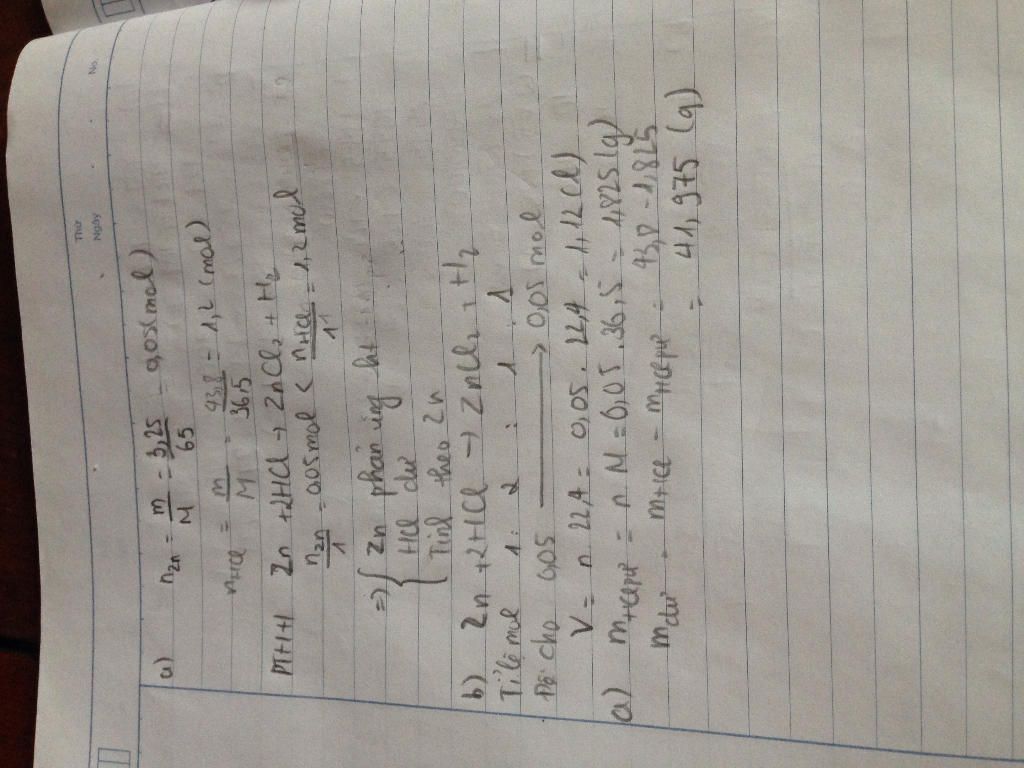 No.
Thứ
Ngày
a) nZn = m/M = 3,25/65 = 0,05(mol)
nHCl = m/M = 43,8/36,5 = 1,2 (mol)
PTHH Zn + 2HCl → ZnCl2 + H2
nZn/1 = 0,05 mol < nHCl/1 = 1,2 mol
=> { Zn phản ứng hết
HCl dư
Tính theo Zn
b) Zn + 2HCl → ZnCl2 + H2
Tỉ lệ mol 1 : 2 : 1 : 1
Đề cho 0,05 → 0,05 mol
V = n . 22,4 = 0,05 . 22,4 = 1,12 (l)
a) mHClpứ = n . M = 0,05 . 36,5 = 1,825 (g)
mdư = mHCl - mHClpứ = 43,8 - 1,825
= 41,975 (g)